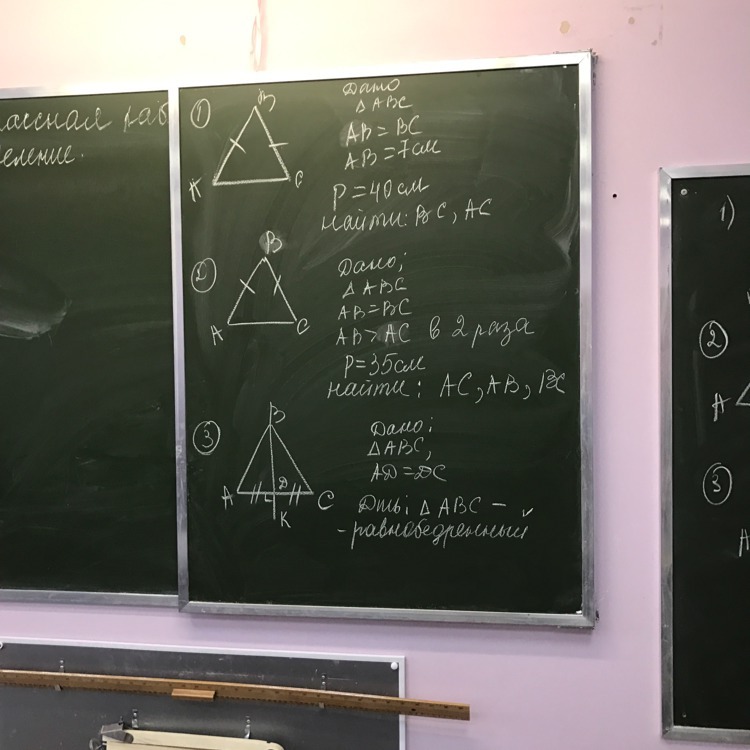 ассная раб
еление.
1
B
A C
Дано
△ABC
AB = BC
AB = 7см
P = 40см
найти: BC, AC
2
B
A C
Дано:
△ABC
AB = BC
AB > AC в 2 раза
P = 35см
найти: AC, AB, BC
3
B
A D C
K
Дано:
△ABC,
AD = DC
Д-ть: △ABC –
- равнобедренный
1)
2
A
3
A